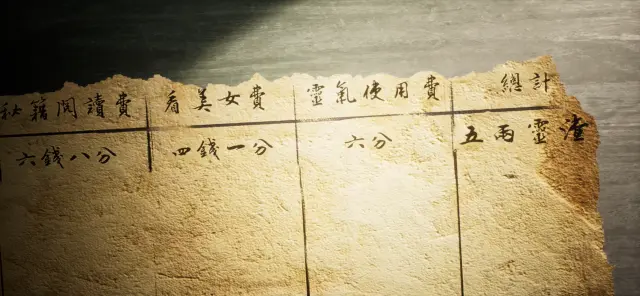 秘籍閱讀費 看美女費 靈氣使用費 總計
六錢八分 四錢一分 六分 五兩靈渣